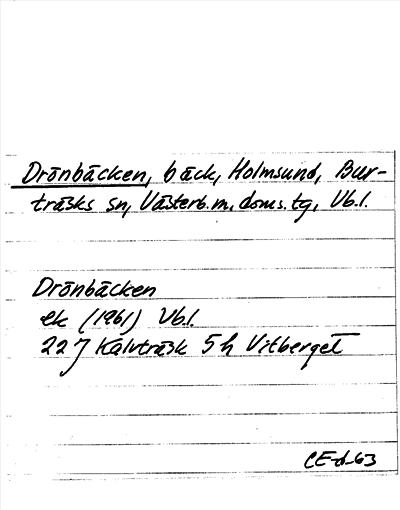 Drönbäcken, bäck, Holmsund, Bur-
träsks sn, Västerb.m. doms.tg, Vb.l.
Drönbäcken
ek (1961) Vb.l.
22 J Kalvträsk 5 h Vitberget
CE-d-63